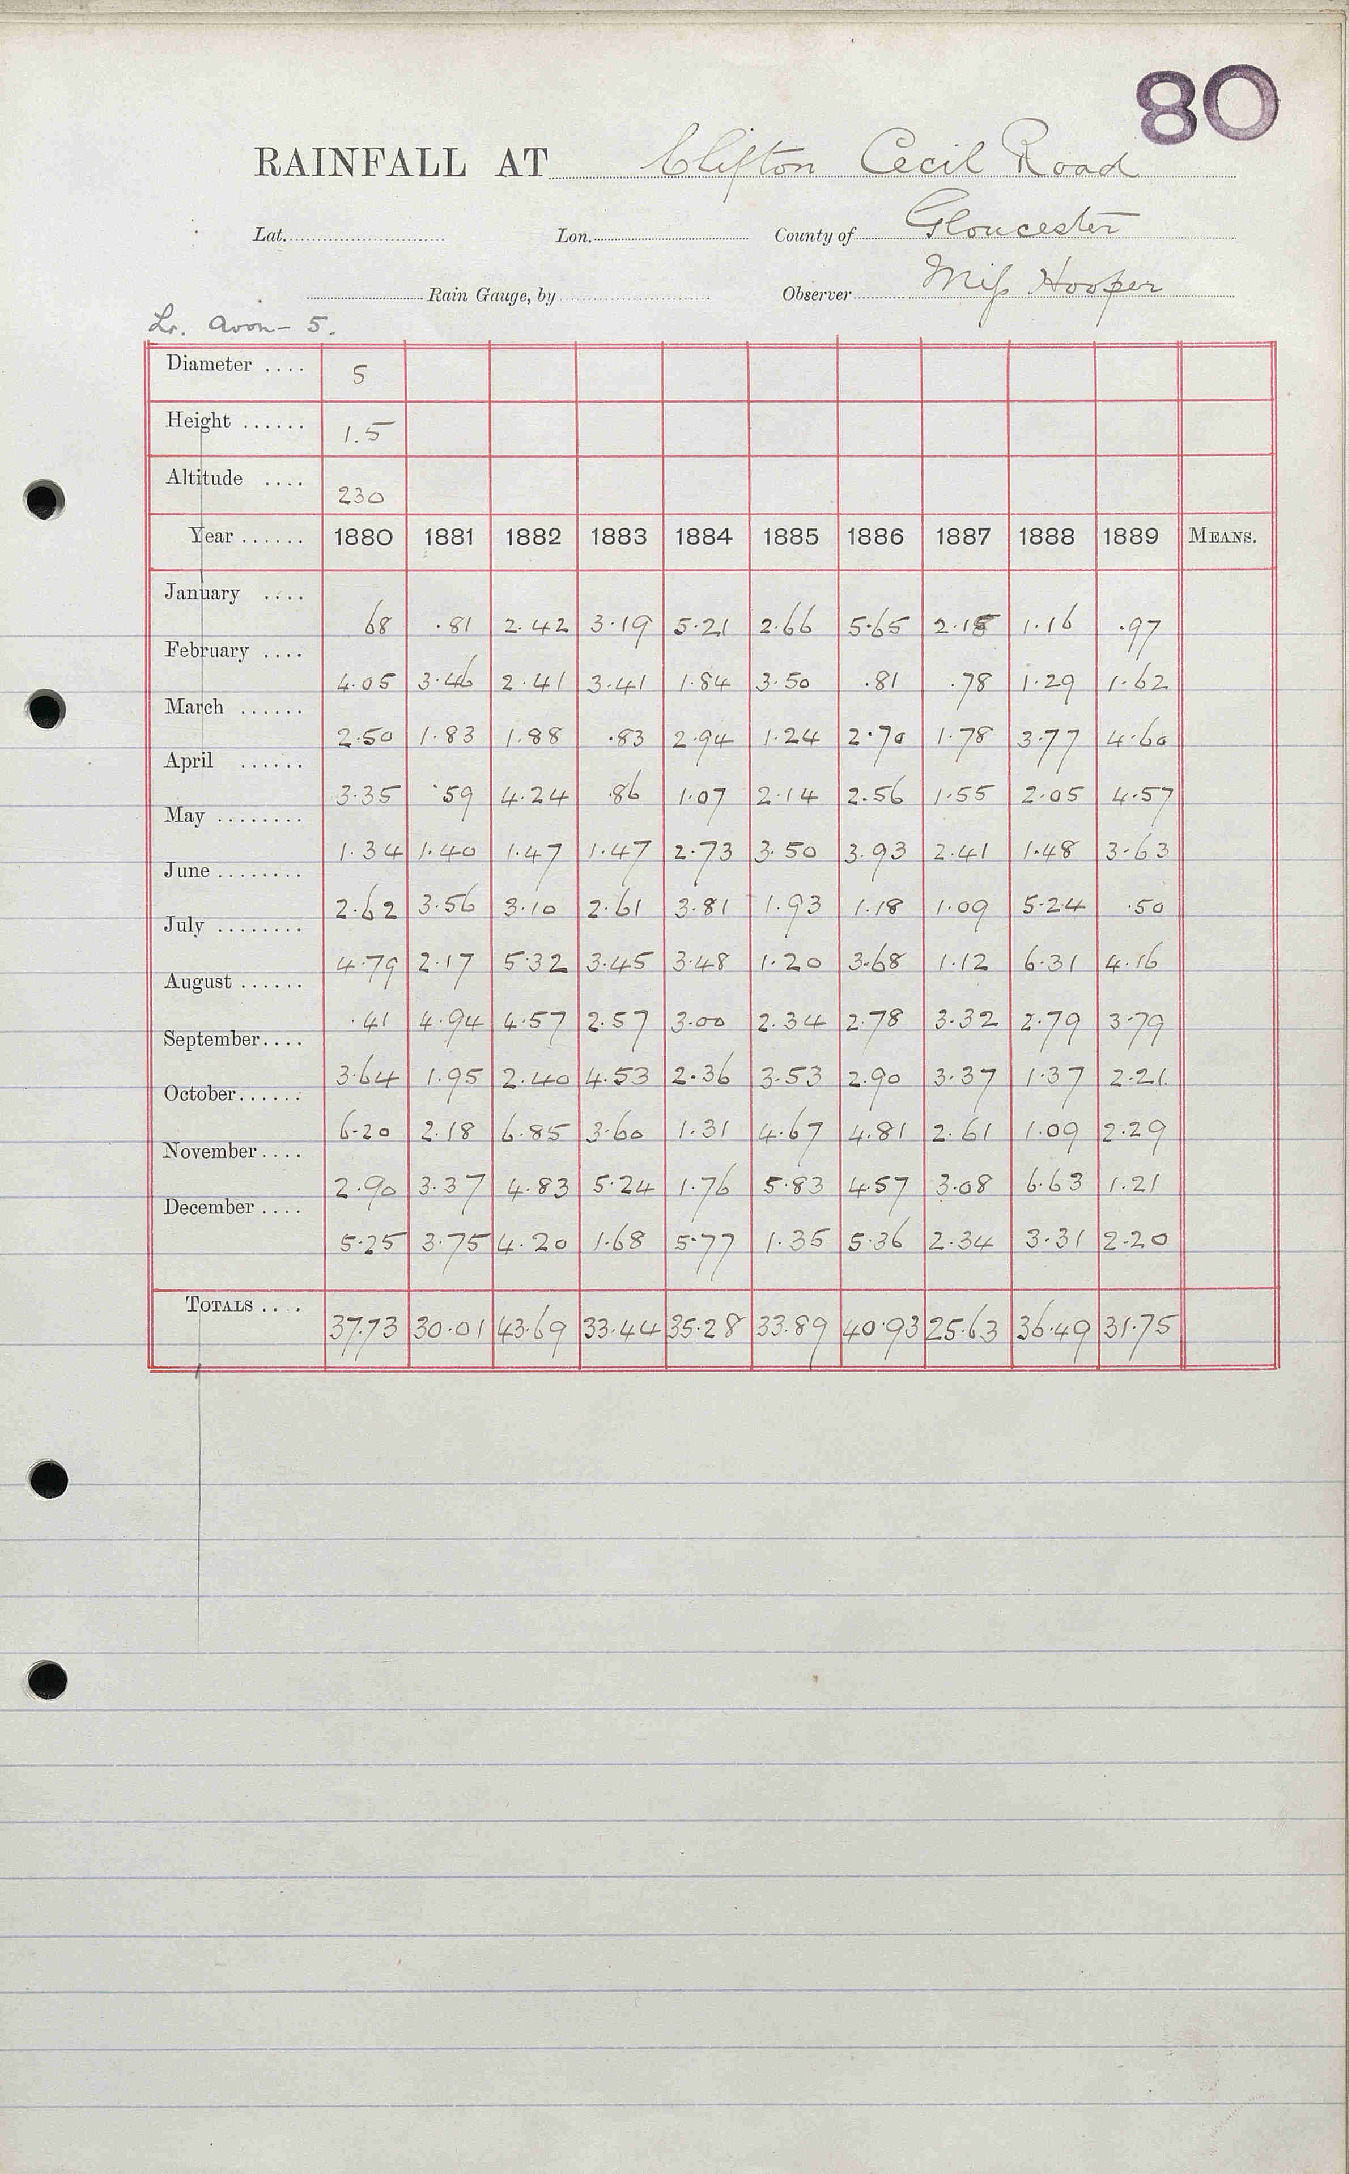 80
RAINFALL AT Clifton Cecil Road
Lat. Lon. County of Gloucester
Rain Gauge, by Observer Miss Hooper
Lr. Avon - 5.
Diameter .... 5
Height ...... 1.5
Altitude .... 230
Year ...... 1880 1881 1882 1883 1884 1885 1886 1887 1888 1889 MEANS.
January .... 68 .81 2.42 3.19 5.21 2.66 5.65 2.15 1.16 .97
February .... 4.05 3.46 2.41 3.41 1.84 3.50 .81 .78 1.29 1.62
March ...... 2.50 1.83 1.88 .83 2.94 1.24 2.70 1.78 3.77 4.60
April ...... 3.35 .59 4.24 .86 1.07 2.14 2.56 1.55 2.05 4.57
May ........ 1.34 1.40 1.47 1.47 2.73 3.50 3.93 2.41 1.48 3.63
June ........ 2.62 3.56 3.10 2.61 3.81 1.93 1.18 1.09 5.24 .50
July ........ 4.79 2.17 5.32 3.45 3.48 1.20 3.68 1.12 6.31 4.16
August ...... .41 4.94 4.57 2.57 3.00 2.34 2.78 3.32 2.79 3.79
September.... 3.64 1.95 2.40 4.53 2.36 3.53 2.90 3.37 1.37 2.21
October...... 6.20 2.18 6.85 3.60 1.31 4.67 4.81 2.61 1.09 2.29
November.... 2.90 3.37 4.83 5.24 1.76 5.83 4.57 3.08 6.63 1.21
December.... 5.25 3.75 4.20 1.68 5.77 1.35 5.36 2.34 3.31 2.20
TOTALS .... 37.73 30.01 43.69 33.44 35.28 33.89 40.93 25.63 36.49 31.75